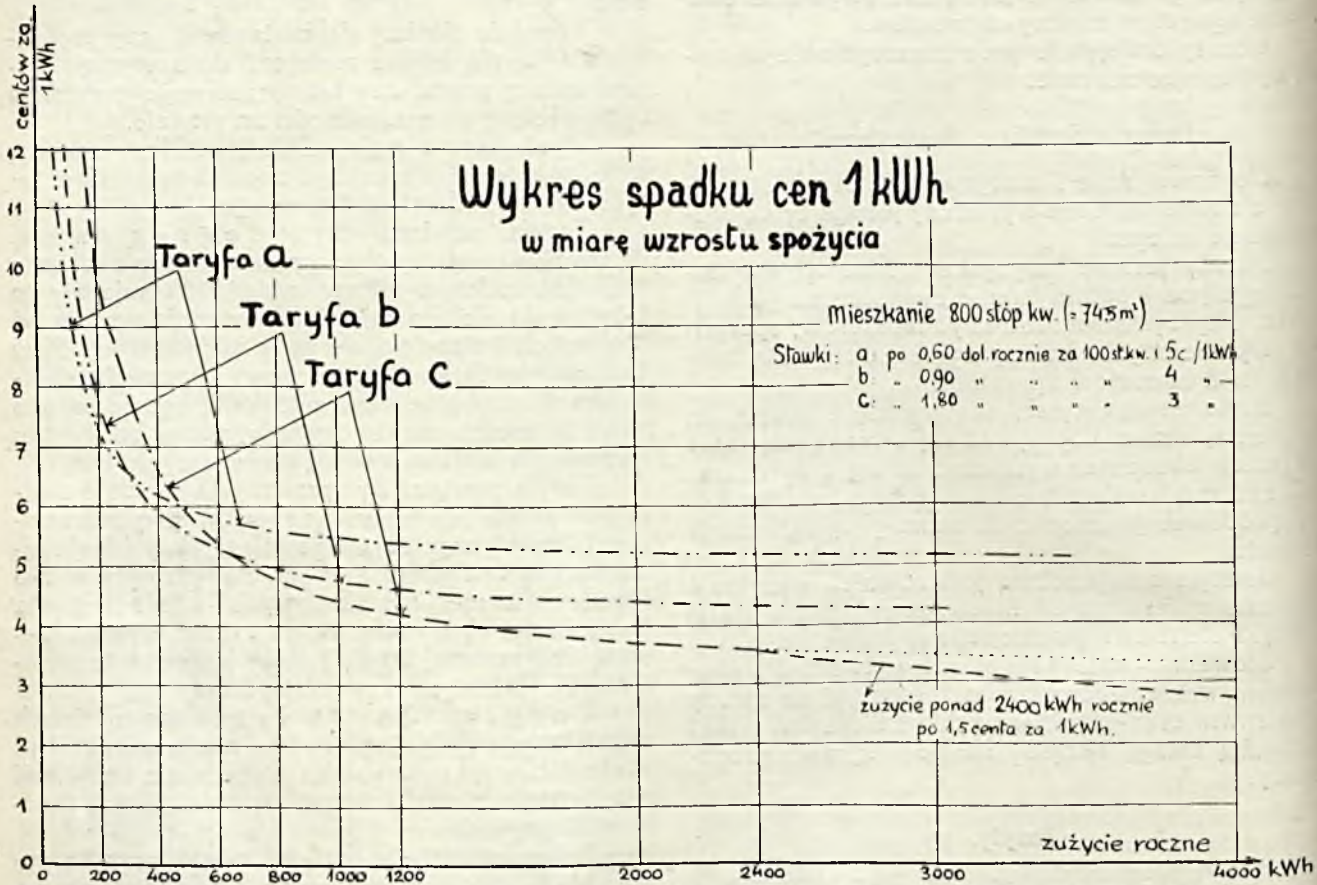 centów za
1 kWh
Wykres spadku cen 1 kWh
w miarę wzrostu spożycia
Taryfa a
Taryfa b
Taryfa c
Mieszkanie 800 stóp kw. (= 74.5 m²)
Stawki: a po 0,60 dol. rocznie za 100 st. kw. i 5c /1kWh
b „ 0,90 „ „ „ „ 4 „
c: „ 1,80 „ „ „ „ 3 „
zużycie ponad 2400 kWh rocznie
po 1,5 centa za 1kWh.
12
11
10
9
8
7
6
5
4
3
2
1
0
zużycie roczne
0 200 400 600 800 1000 1200 2000 2400 3000 4000 kWh